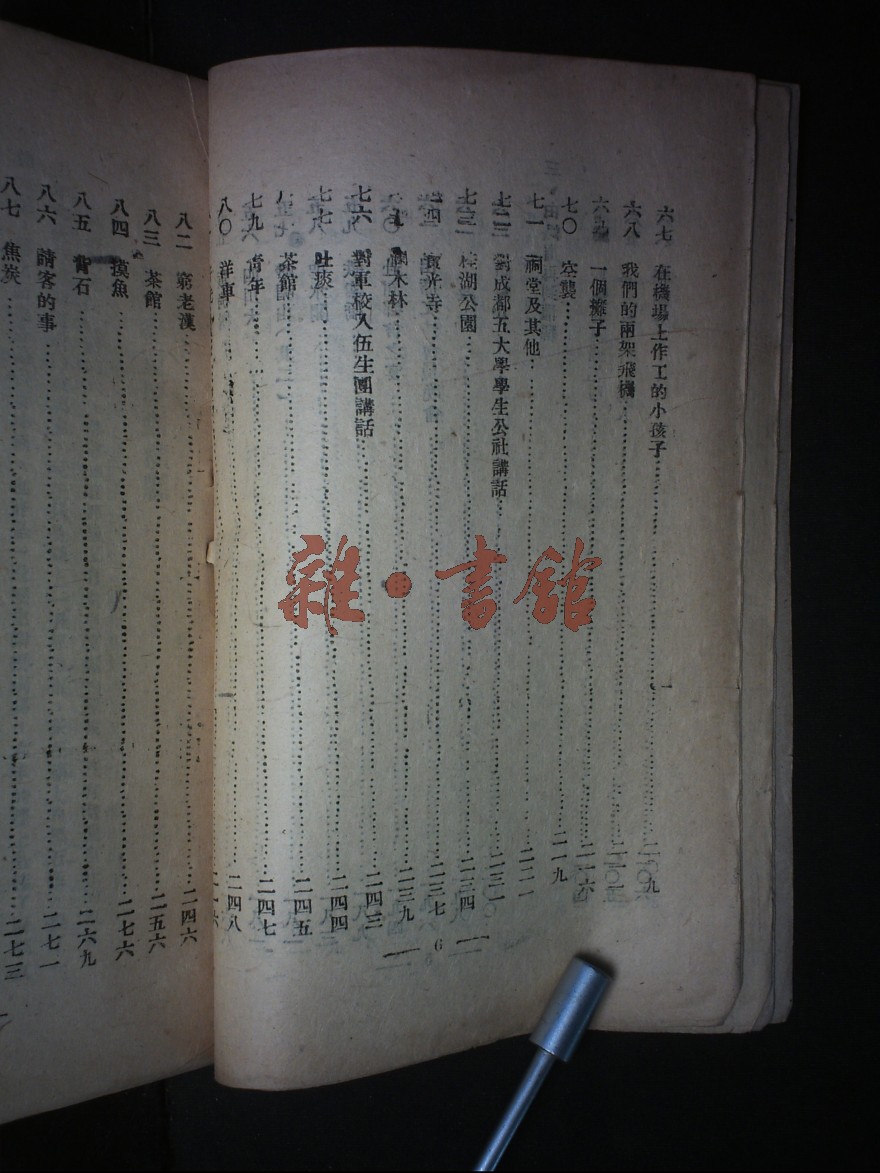 六七 在機場上作工的小孩子 二〇九
六八 我們的兩架飛機
六九 一個攤子 二一六
七〇 空襲 二一九
七一 祠堂及其他 二二一
七二 對成都五大學學生公社講話 二三一
七三 桂湖公園 二三四
寶光寺 二三七
木林 二三九
七六 對軍校入伍生團講話 二四三
七七 吐痰 二四四
茶館 二四五
七九 青年 二四七
八〇 洋車 二四八
八二 窮老漢 二四六
八三 茶館 二五六
八四 摸魚 二七六
八五 背石 二六九
八六 請客的事 二七一
八七 焦炭 二七三
6
雜·書館